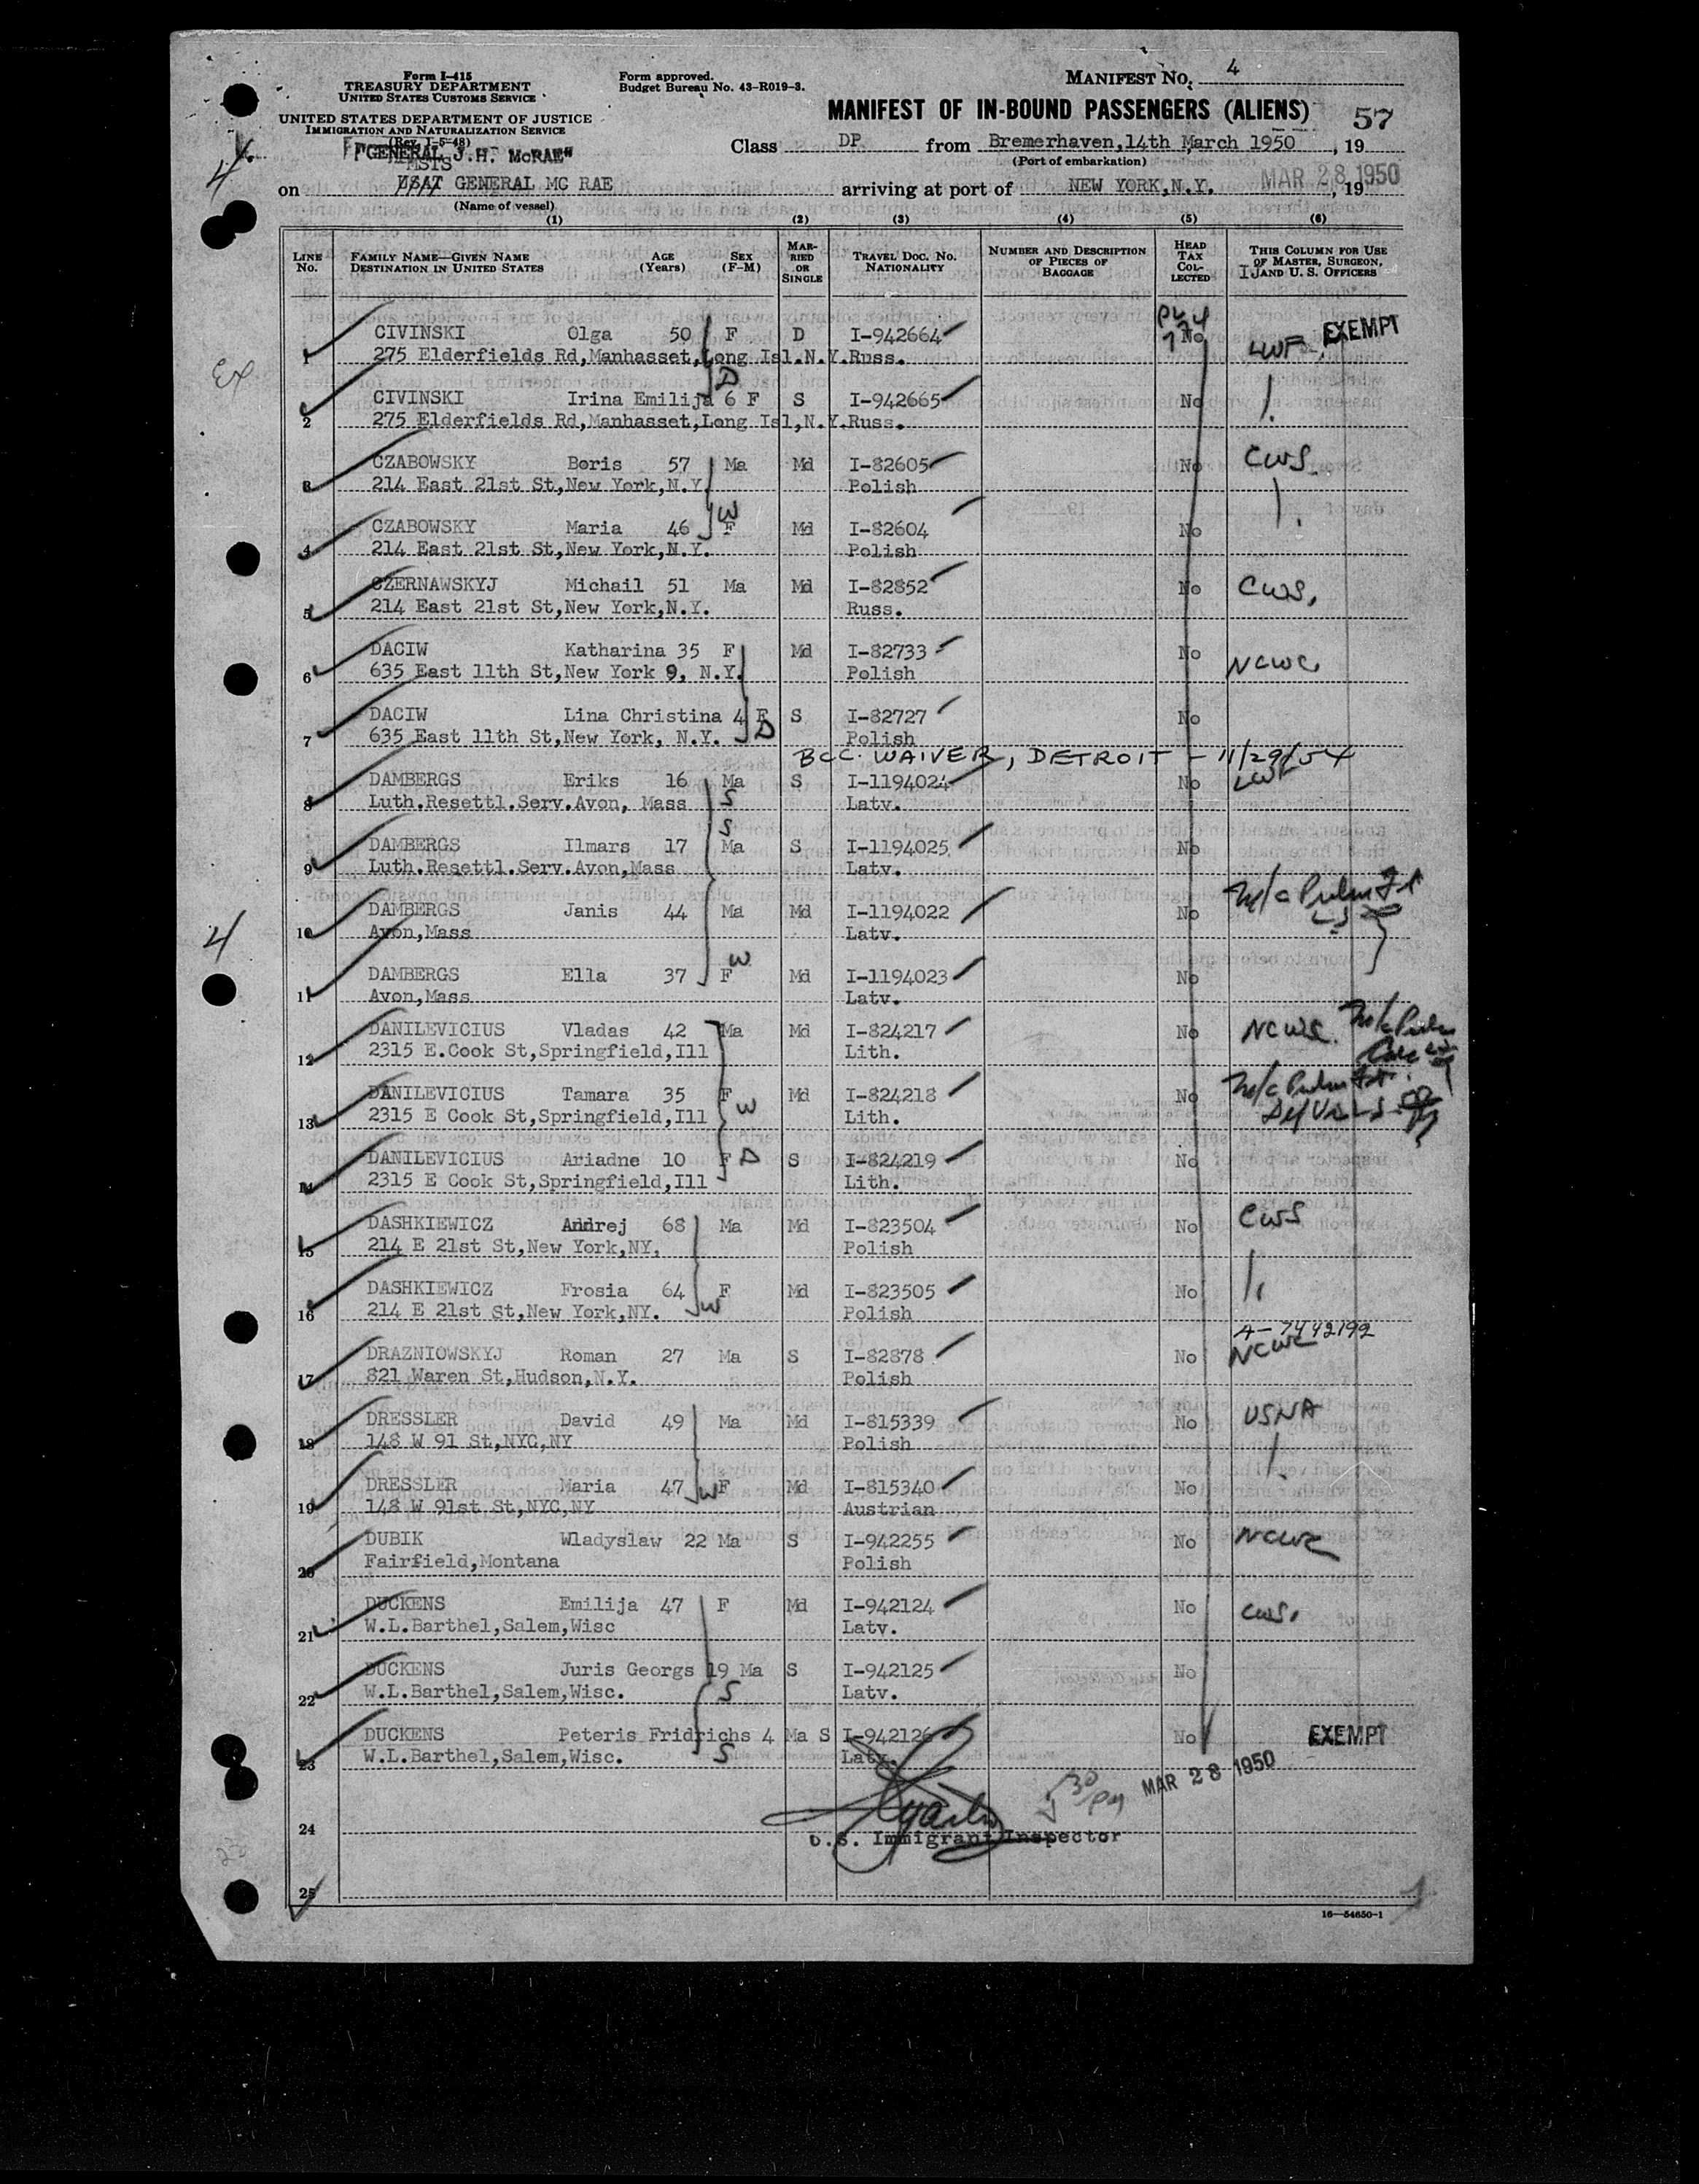 Form I-415
TREASURY DEPARTMENT
UNITED STATES CUSTOMS SERVICE
UNITED STATES DEPARTMENT OF JUSTICE
IMMIGRATION AND NATURALIZATION SERVICE
(Rev. 1-5-48)
Form approved.
Budget Bureau No. 43-R019-3.
MANIFEST No. 4
MANIFEST OF IN-BOUND PASSENGERS (ALIENS) 57
"GENERAL J.H. McRAE"
Class DP from Bremerhaven,14th March 1950, 19
(Port of embarkation)
MSTS
4
on USAT GENERAL MC RAE arriving at port of NEW YORK,N.Y. MAR 28 1950, 19
(Name of vessel)
(1) (2) (3) (4) (5) (6)
LINE No. FAMILY NAME—GIVEN NAME DESTINATION IN UNITED STATES AGE (Years) SEX (F-M) MARRIED OR SINGLE TRAVEL DOC. NO. NATIONALITY NUMBER AND DESCRIPTION OF PIECES OF BAGGAGE HEAD TAX COLLECTED THIS COLUMN FOR USE OF MASTER, SURGEON, AND U. S. OFFICERS
1 CIVINSKI Olga 50 F D I-942664 No LWF EXEMPT
275 Elderfields Rd,Manhasset,Long Isl.N.Y.Russ.
Ex
D
2 CIVINSKI Irina Emilija 6 F S I-942665 No
275 Elderfields Rd,Manhasset,Long Isl,N.Y.Russ.
3 CZABOWSKY Boris 57 Ma Md I-82605 No CWS
214 East 21st St,New York,N.Y. Polish
W
4 CZABOWSKY Maria 46 F Md I-82604 No
214 East 21st St,New York,N.Y. Polish
5 CZERNAWSKYJ Michail 51 Ma Md I-82852 No CWS.
214 East 21st St,New York,N.Y. Russ.
6 DACIW Katharina 35 F Md I-82733 No NCWC
635 East 11th St,New York 9, N.Y. Polish
7 DACIW Lina Christina 4 F S I-82727 No
635 East 11th St,New York, N.Y. D Polish
BCC. WAIVER, DETROIT - 11/29/54
8 DAMBERGS Eriks 16 Ma S I-1194024 No LWF
Luth.Resettl.Serv.Avon, Mass S Latv.
S
9 DAMBERGS Ilmars 17 Ma S I-1194025 No
Luth.Resettl.Serv.Avon,Mass Latv.
10 DAMBERGS Janis 44 Ma Md I-1194022 No
Avon,Mass Latv.
4
W
11 DAMBERGS Ella 37 F Md I-1194023 No
Avon,Mass Latv.
12 DANILEVICIUS Vladas 42 Ma Md I-824217 No NCWC
2315 E.Cook St,Springfield,Ill Lith.
13 DANILEVICIUS Tamara 35 F Md I-824218 No
2315 E Cook St,Springfield,Ill W Lith.
14 DANILEVICIUS Ariadne 10 F D S I-824219 No
2315 E Cook St,Springfield,Ill Lith.
15 DASHKIEWICZ Andrej 68 Ma Md I-823504 No CWS
214 E 21st St,New York,NY. Polish
16 DASHKIEWICZ Frosia 64 F Md I-823505 No
214 E 21st St,New York,NY. W Polish
A-7442192
17 DRAZNIOWSKYJ Roman 27 Ma S I-82878 No NCWC
821 Waren St,Hudson,N.Y. Polish
18 DRESSLER David 49 Ma Md I-815339 No USNA
148 W 91 St,NYC,NY Polish
19 DRESSLER Maria 47 W F Md I-815340 No
148 W 91st St,NYC,NY Austrian
20 DUBIK Wladyslaw 22 Ma S I-942255 No NCWC
Fairfield,Montana Polish
21 DUCKENS Emilija 47 F Md I-942124 No CWS.
W.L.Barthel,Salem,Wisc Latv.
22 DUCKENS Juris Georgs 19 Ma S I-942125 No
W.L.Barthel,Salem,Wisc. S Latv.
23 DUCKENS Peteris Fridrichs 4 Ma S I-942126 No EXEMPT
W.L.Barthel,Salem,Wisc. S Latv.
MAR 28 1950
24
U.S. Immigrant Inspector
25
16—54650-1